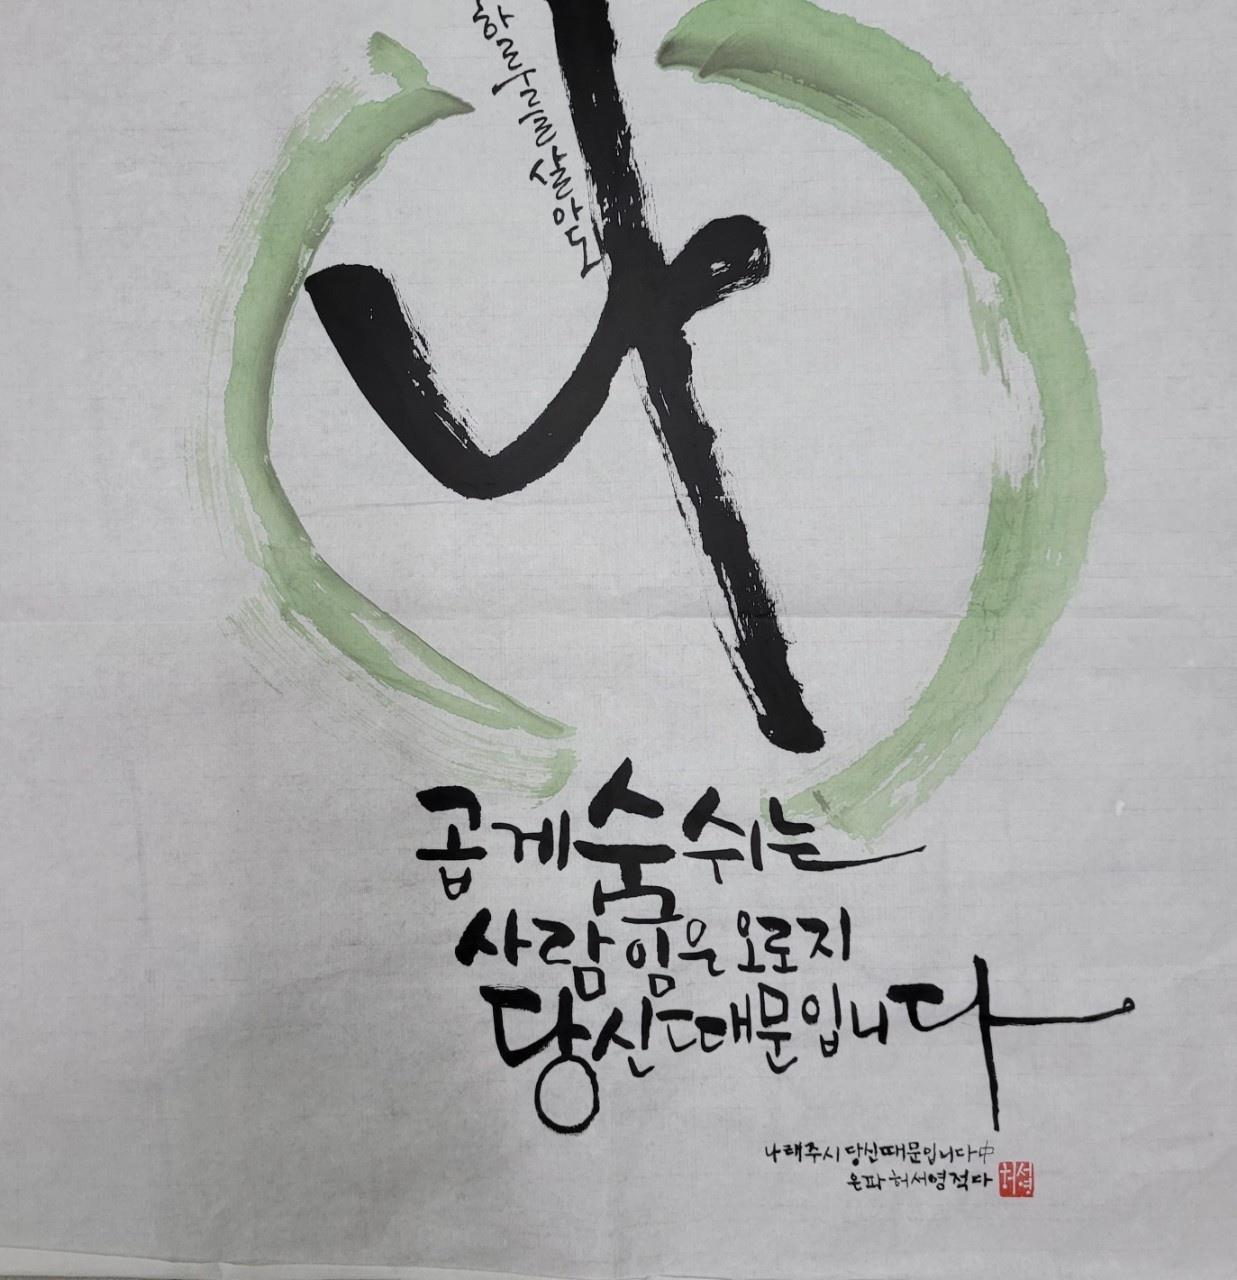 하루를 살아도
나
곱게 숨 쉬는
사람임은 오로지
당신 때문입니다
나태주 시 당신 때문입니다 中
은파 허서영 적다
허서영